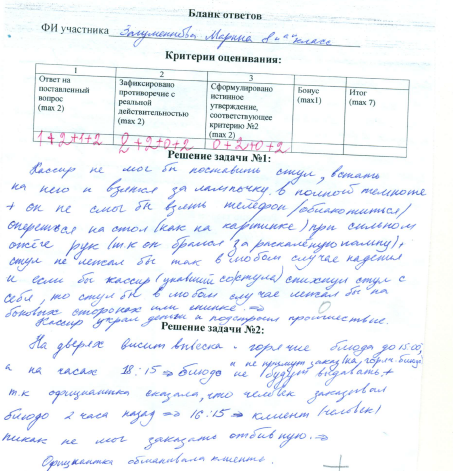 Бланк ответов
ФИ участника Залуженнева Марина 8 "а" класс
Критерии оценивания:
1 2 3
Ответ на поставленный вопрос (max 2) Зафиксировано противоречие с реальной действительностью (max 2) Сформулировано истинное утверждение, соответствующее критерию №2 (max 2) Бонус (max1) Итог (max 7)
1+2+1+2 2+2+0+2 0+2+0+2
Решение задачи №1:
Кассир не мог бы поставить стул, встать
на него и взяться за лампочку в полной темноте
+ он не смог бы взять телефон /облокотиться/
опереться на стол (как на картинке) при сильном
ожоге рук (т к он брался за раскалённую лампу) +
стул не лежал бы так в любом случае падения
и если бы кассир (упавший со стула) спихнул стул с
себя, то стул бы в любом случае лежал бы на
боковых сторонах или спинке. ⇒
Кассир украл деньги и подстроил происшествие.
Решение задачи №2:
На дверях висит вывеска - горячие блюда до 15:00,
а на часах 18:15 ⇒ блюдо не будут выдавать, +
и не примут заказ на горяч. блюдо
т.к официантка сказала, что человек заказывал
блюдо 2 часа назад ⇒ 16:15 ⇒ клиент (человек)
никак не мог заказать отбивную. ⇒
Официантка обманывала клиента. +